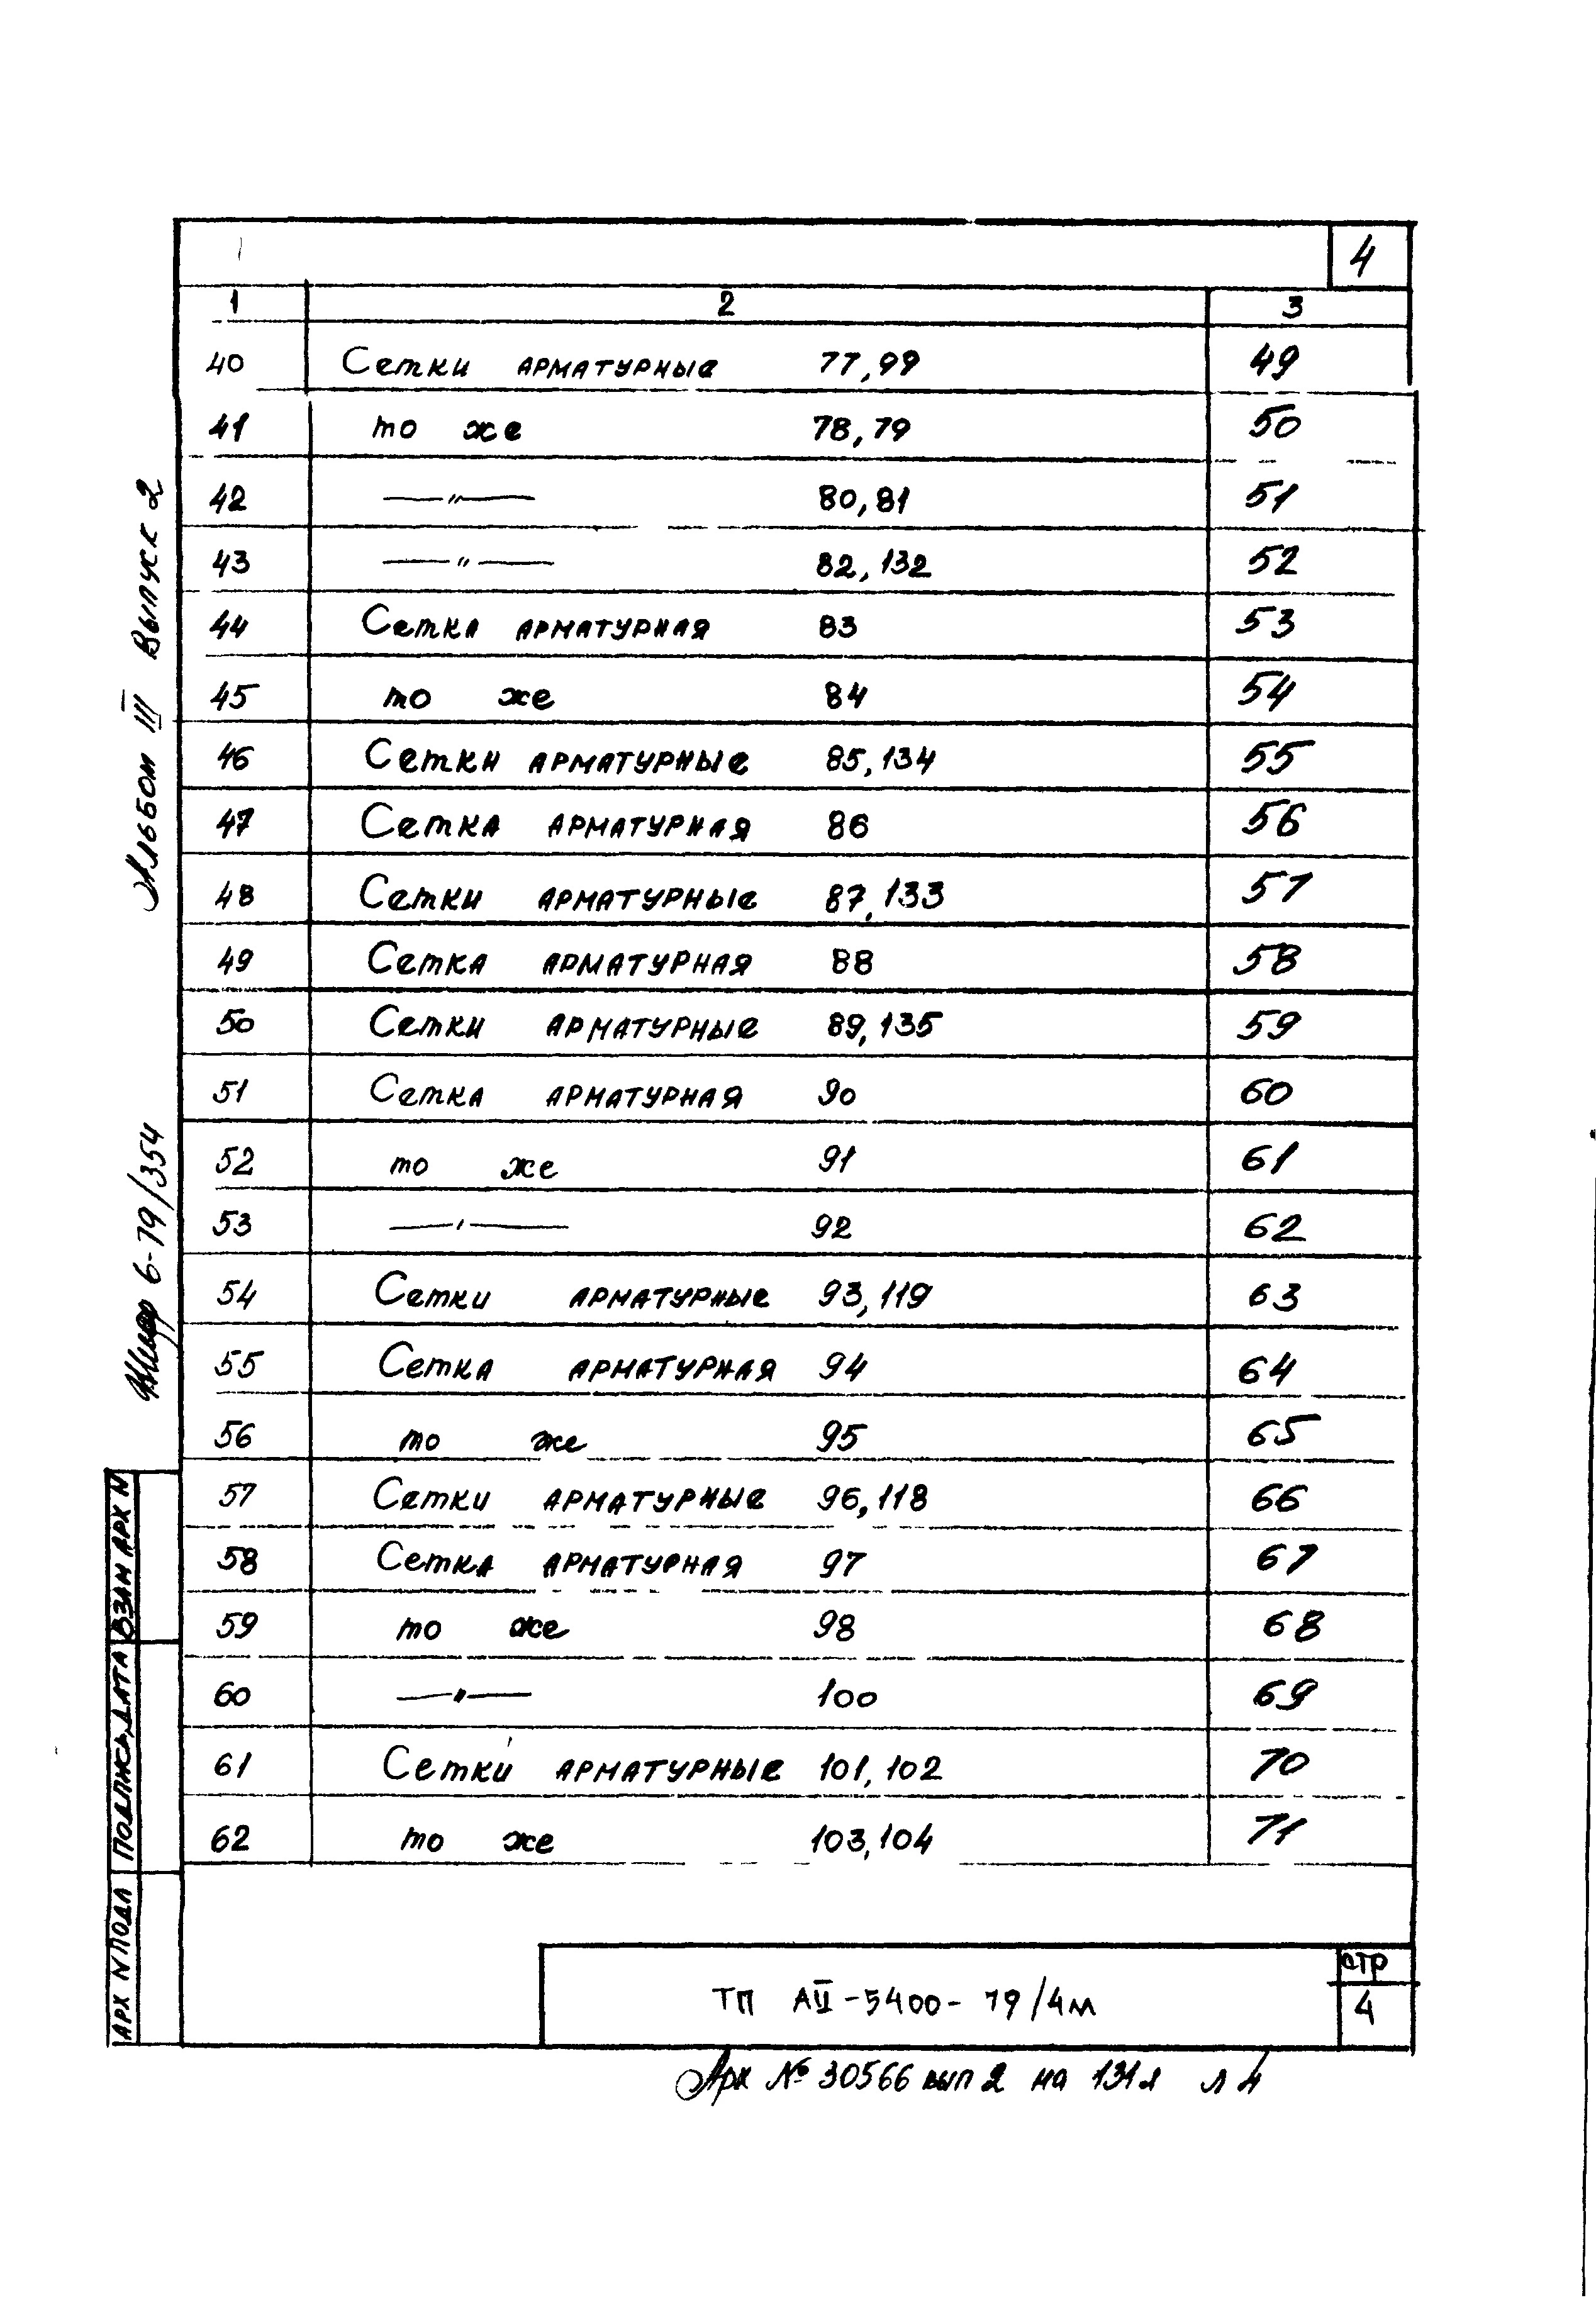 4
1 2 3
40 Сетки арматурные 77,99 49
41 то же 78,79 50
42 —"— 80,81 51
43 —"— 82,132 52
44 Сетка арматурная 83 53
45 то же 84 54
46 Сетки арматурные 85,134 55
47 Сетка арматурная 86 56
48 Сетки арматурные 87,133 57
49 Сетка арматурная 88 58
50 Сетки арматурные 89,135 59
51 Сетка арматурная 90 60
52 то же 91 61
53 —"— 92 62
54 Сетки арматурные 93,119 63
55 Сетка арматурная 94 64
56 то же 95 65
57 Сетки арматурные 96,118 66
58 Сетка арматурная 97 67
59 то же 98 68
60 —"— 100 69
61 Сетки арматурные 101,102 70
62 то же 103,104 71
Альбом III Выпуск 2
6-79/354
ВЗАМ АРХ N
ПОДПИСЬ, ДАТА
АРХ N ПОДЛ
ТП АII-5400-79/4м
стр
4
Арх № 30566 вып 2 на 131л л 4